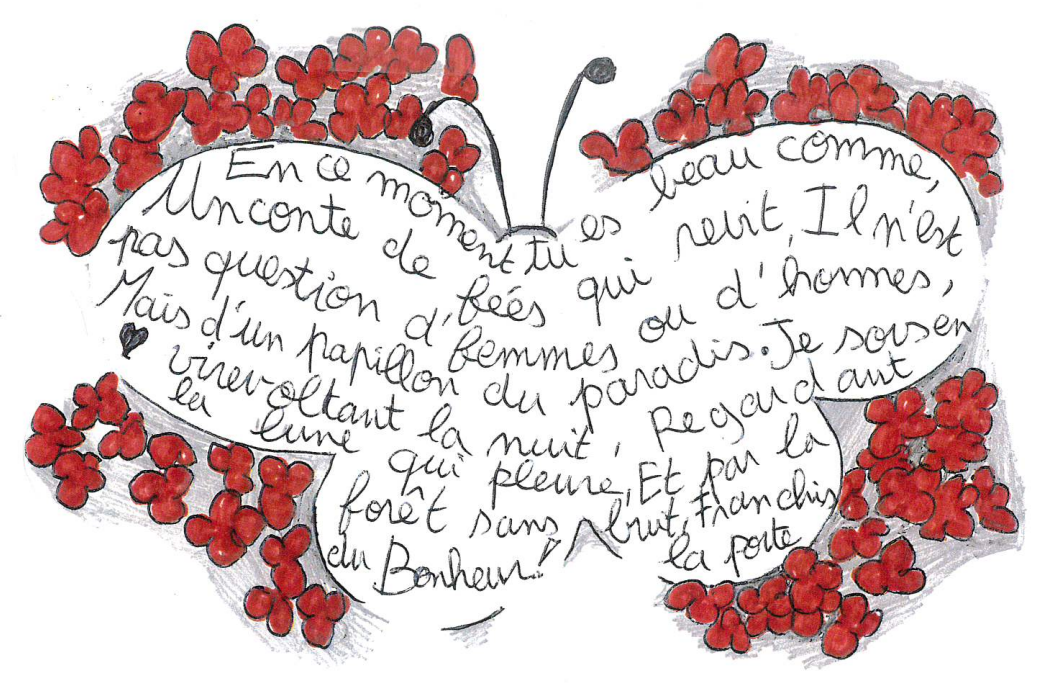 En ce moment tu es beau comme,
Un conte de fées qui revit, Il n'est
pas question d'femmes ou d'hommes,
Mais d'un papillon du paradis. Je sors en
virevoltant la nuit, Regardant
la lune qui pleure, Et par la
forêt sans bruit, Franchis
la porte
du Bonheur!